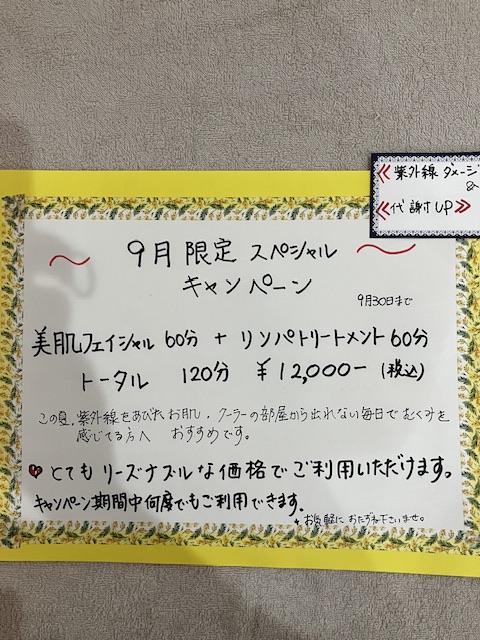 《紫外線ダメージ
&
《代謝UP》
〜 9月 限定 スペシャル 〜
キャンペーン
9月30日まで
美肌フェイシャル 60分 + リンパトリートメント 60分
トータル 120分 ¥12,000- (税込)
この夏、紫外線をあびたお肌、クーラーの部屋から出れない毎日でむくみを
感じてる方へ おすすめです。
とてもリーズナブルな価格でご利用いただけます。
キャンペーン期間中何度でもご利用できます。
*お気軽におたずね下さいませ。